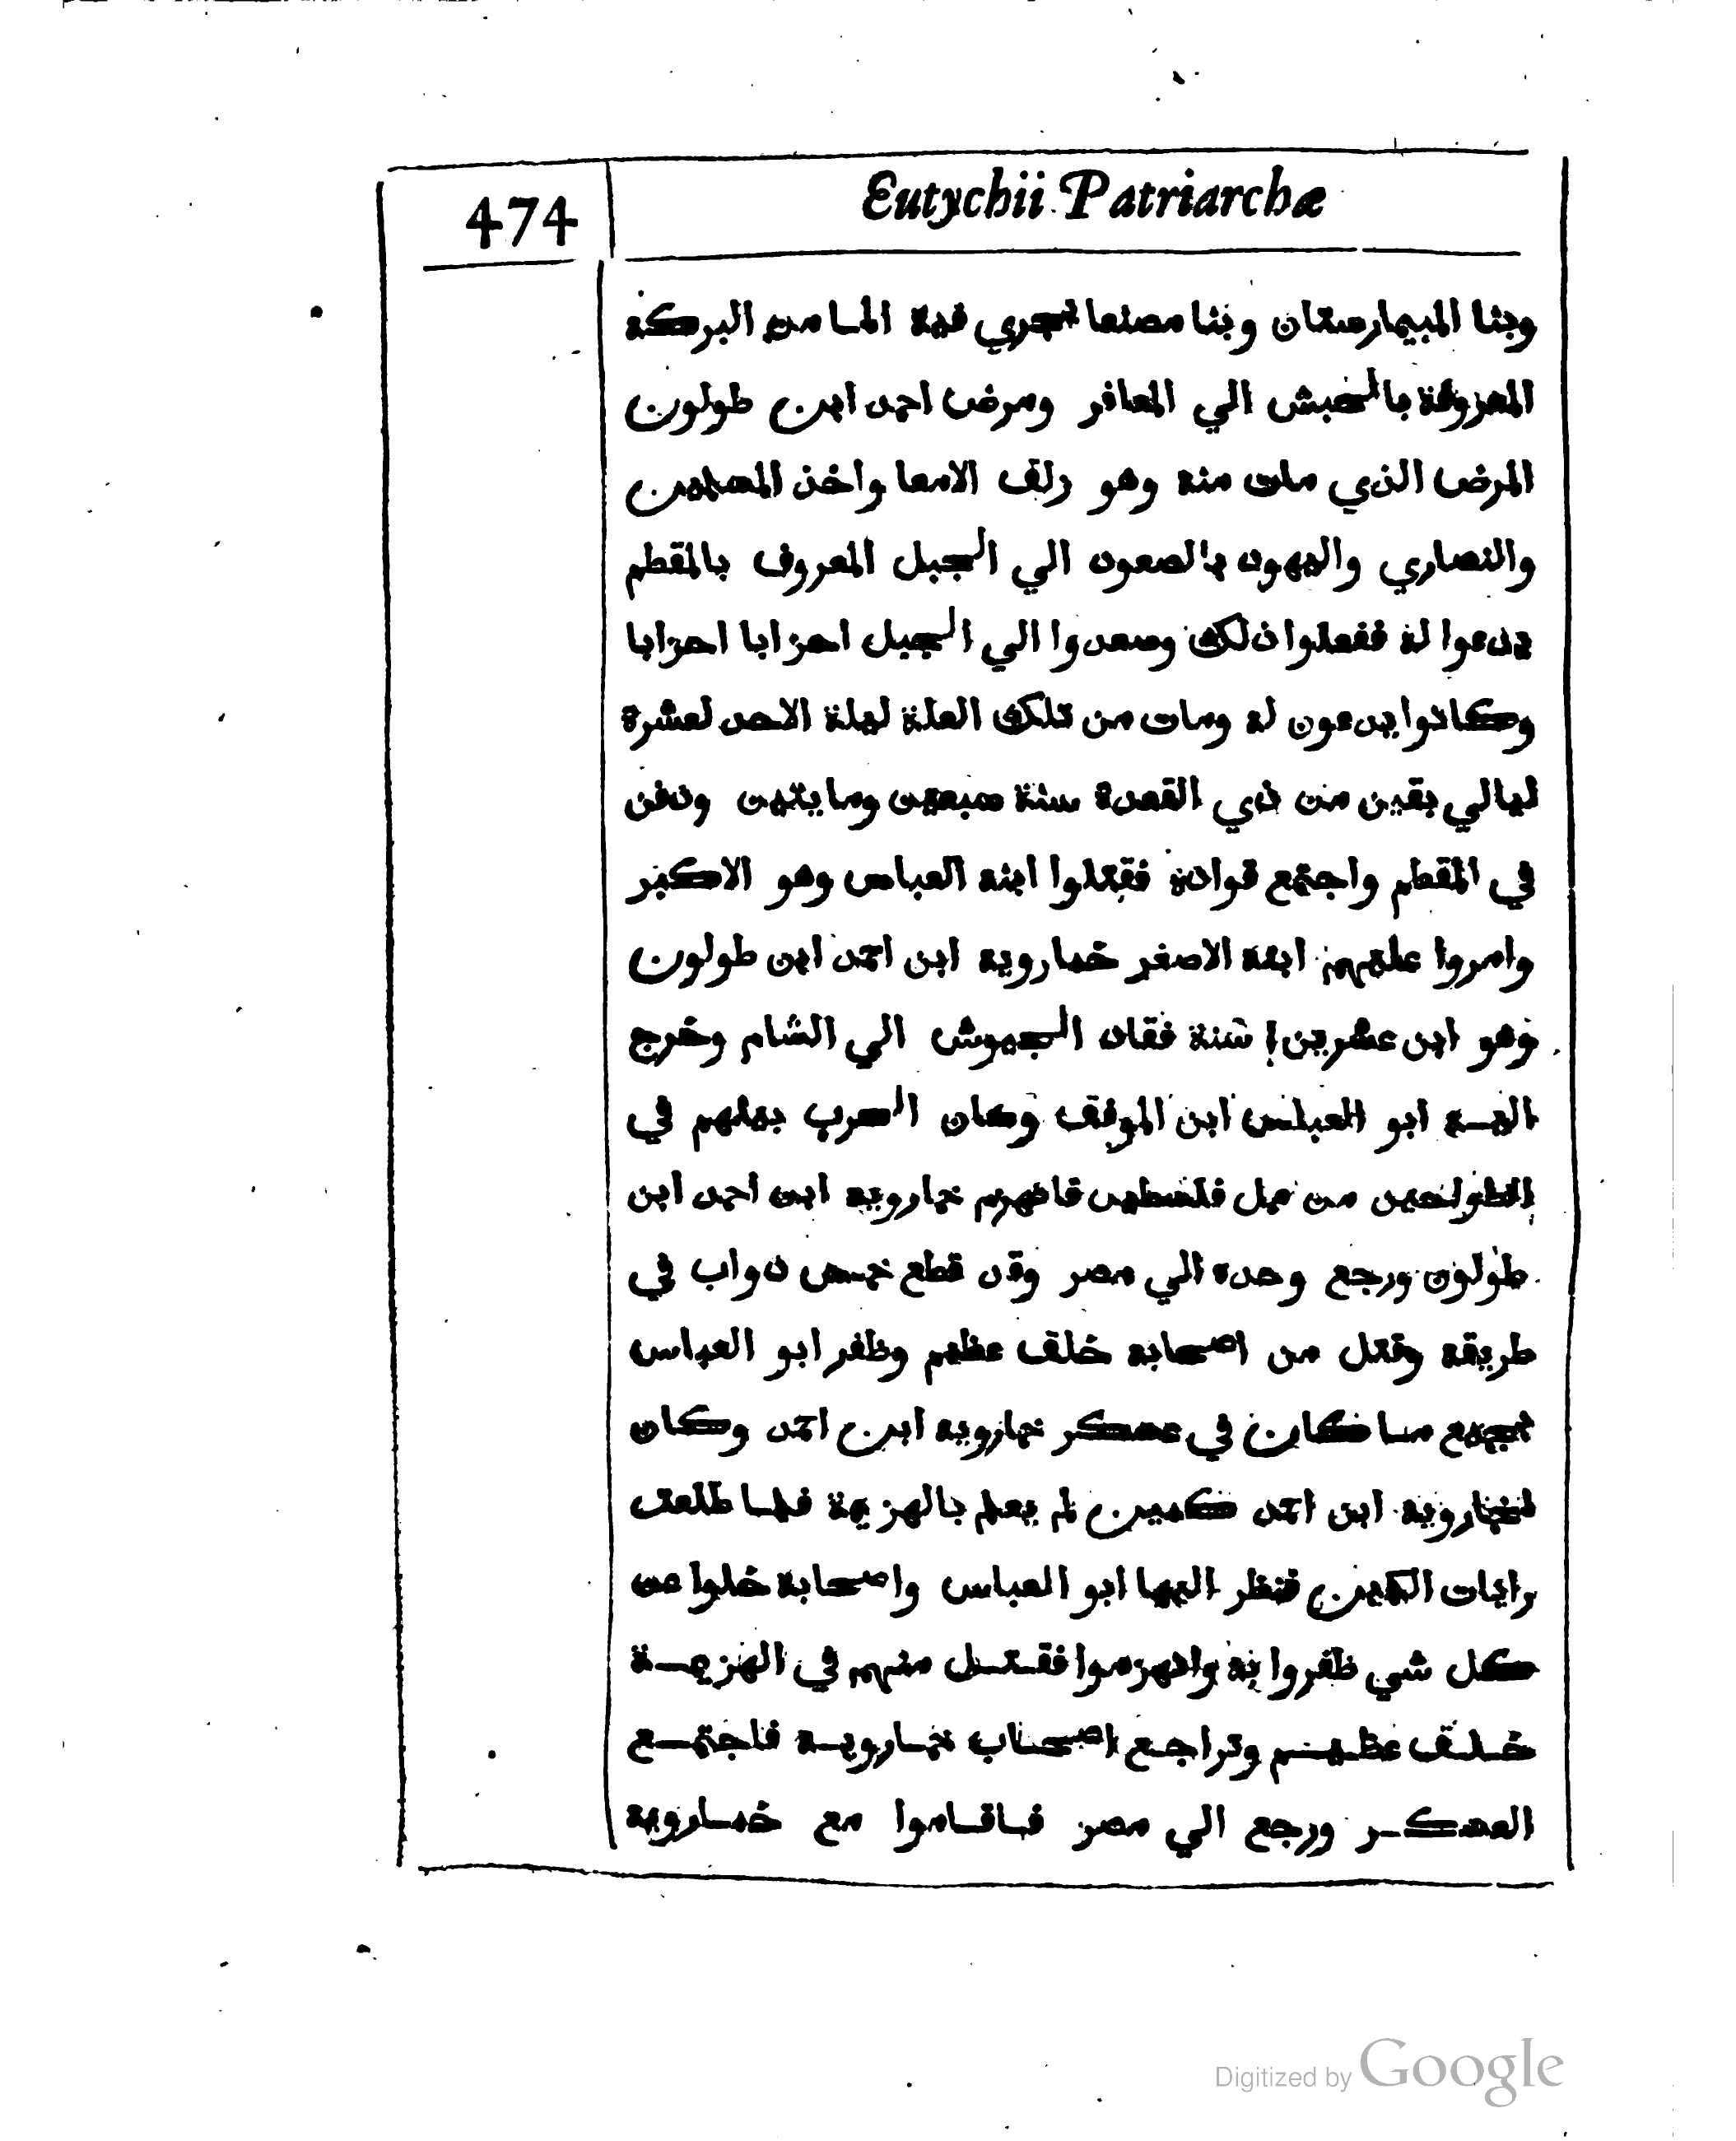 474
Eutychii Patriarchæ
وبنا البيمارستان وبنا مصنعا تجري فية الما من البركة
المعروفة بالحبش الي المعافر ومرض احمد ابن طولون
المرض الذي مات منه وهو زلق الامعا واخذ المسلمين
والنصاري واليهود بالصعود الي الجبل المعروف بالمقطم
يدعوا له ففعلوا ذلك وصعدوا الي الجبل احزابا احزابا
وكانوا يدعون له ومات من تلك العلة ليلة الاحد لعشرة
ليالي بقين من ذي القعدة سنة سبعين ومايتين ودفن
في المقطم واجتمع قواده فقتلوا ابنه العباس وهو الاكبر
وامروا عليهم ابنه الاصغر خمارويه ابن احمد ابن طولون
وهو ابن عشرين سنة فقاد الجيوش الي الشام وخرج
اليه ابو العباس ابن الموفق وكان الحرب بينهم في
الطواحين من عمل فلسطين فانهزم خمارويه ابن احمد ابن
طولون ورجع وحده الي مصر وقد قطع خمس دواب في
طريقه وقتل من اصحابه خلق عظيم وظفر ابو العباس
بجميع ما كان في عسكر خمارويه ابن احمد وكان
لخمارويه ابن احمد كمين لم يعلم بالهزيمة فلما طلعت
رايات الكمين فنظر اليها ابو العباس واصحابه خلوا عن
كل شي ظفروا به وانهزموا فقتل منهم في الهزيمة
خلق عظيم وتراجع اصحاب خمارويه فاجتمع
العسكر ورجع الي مصر فاقاموا مع خمارويه
Digitized by Google